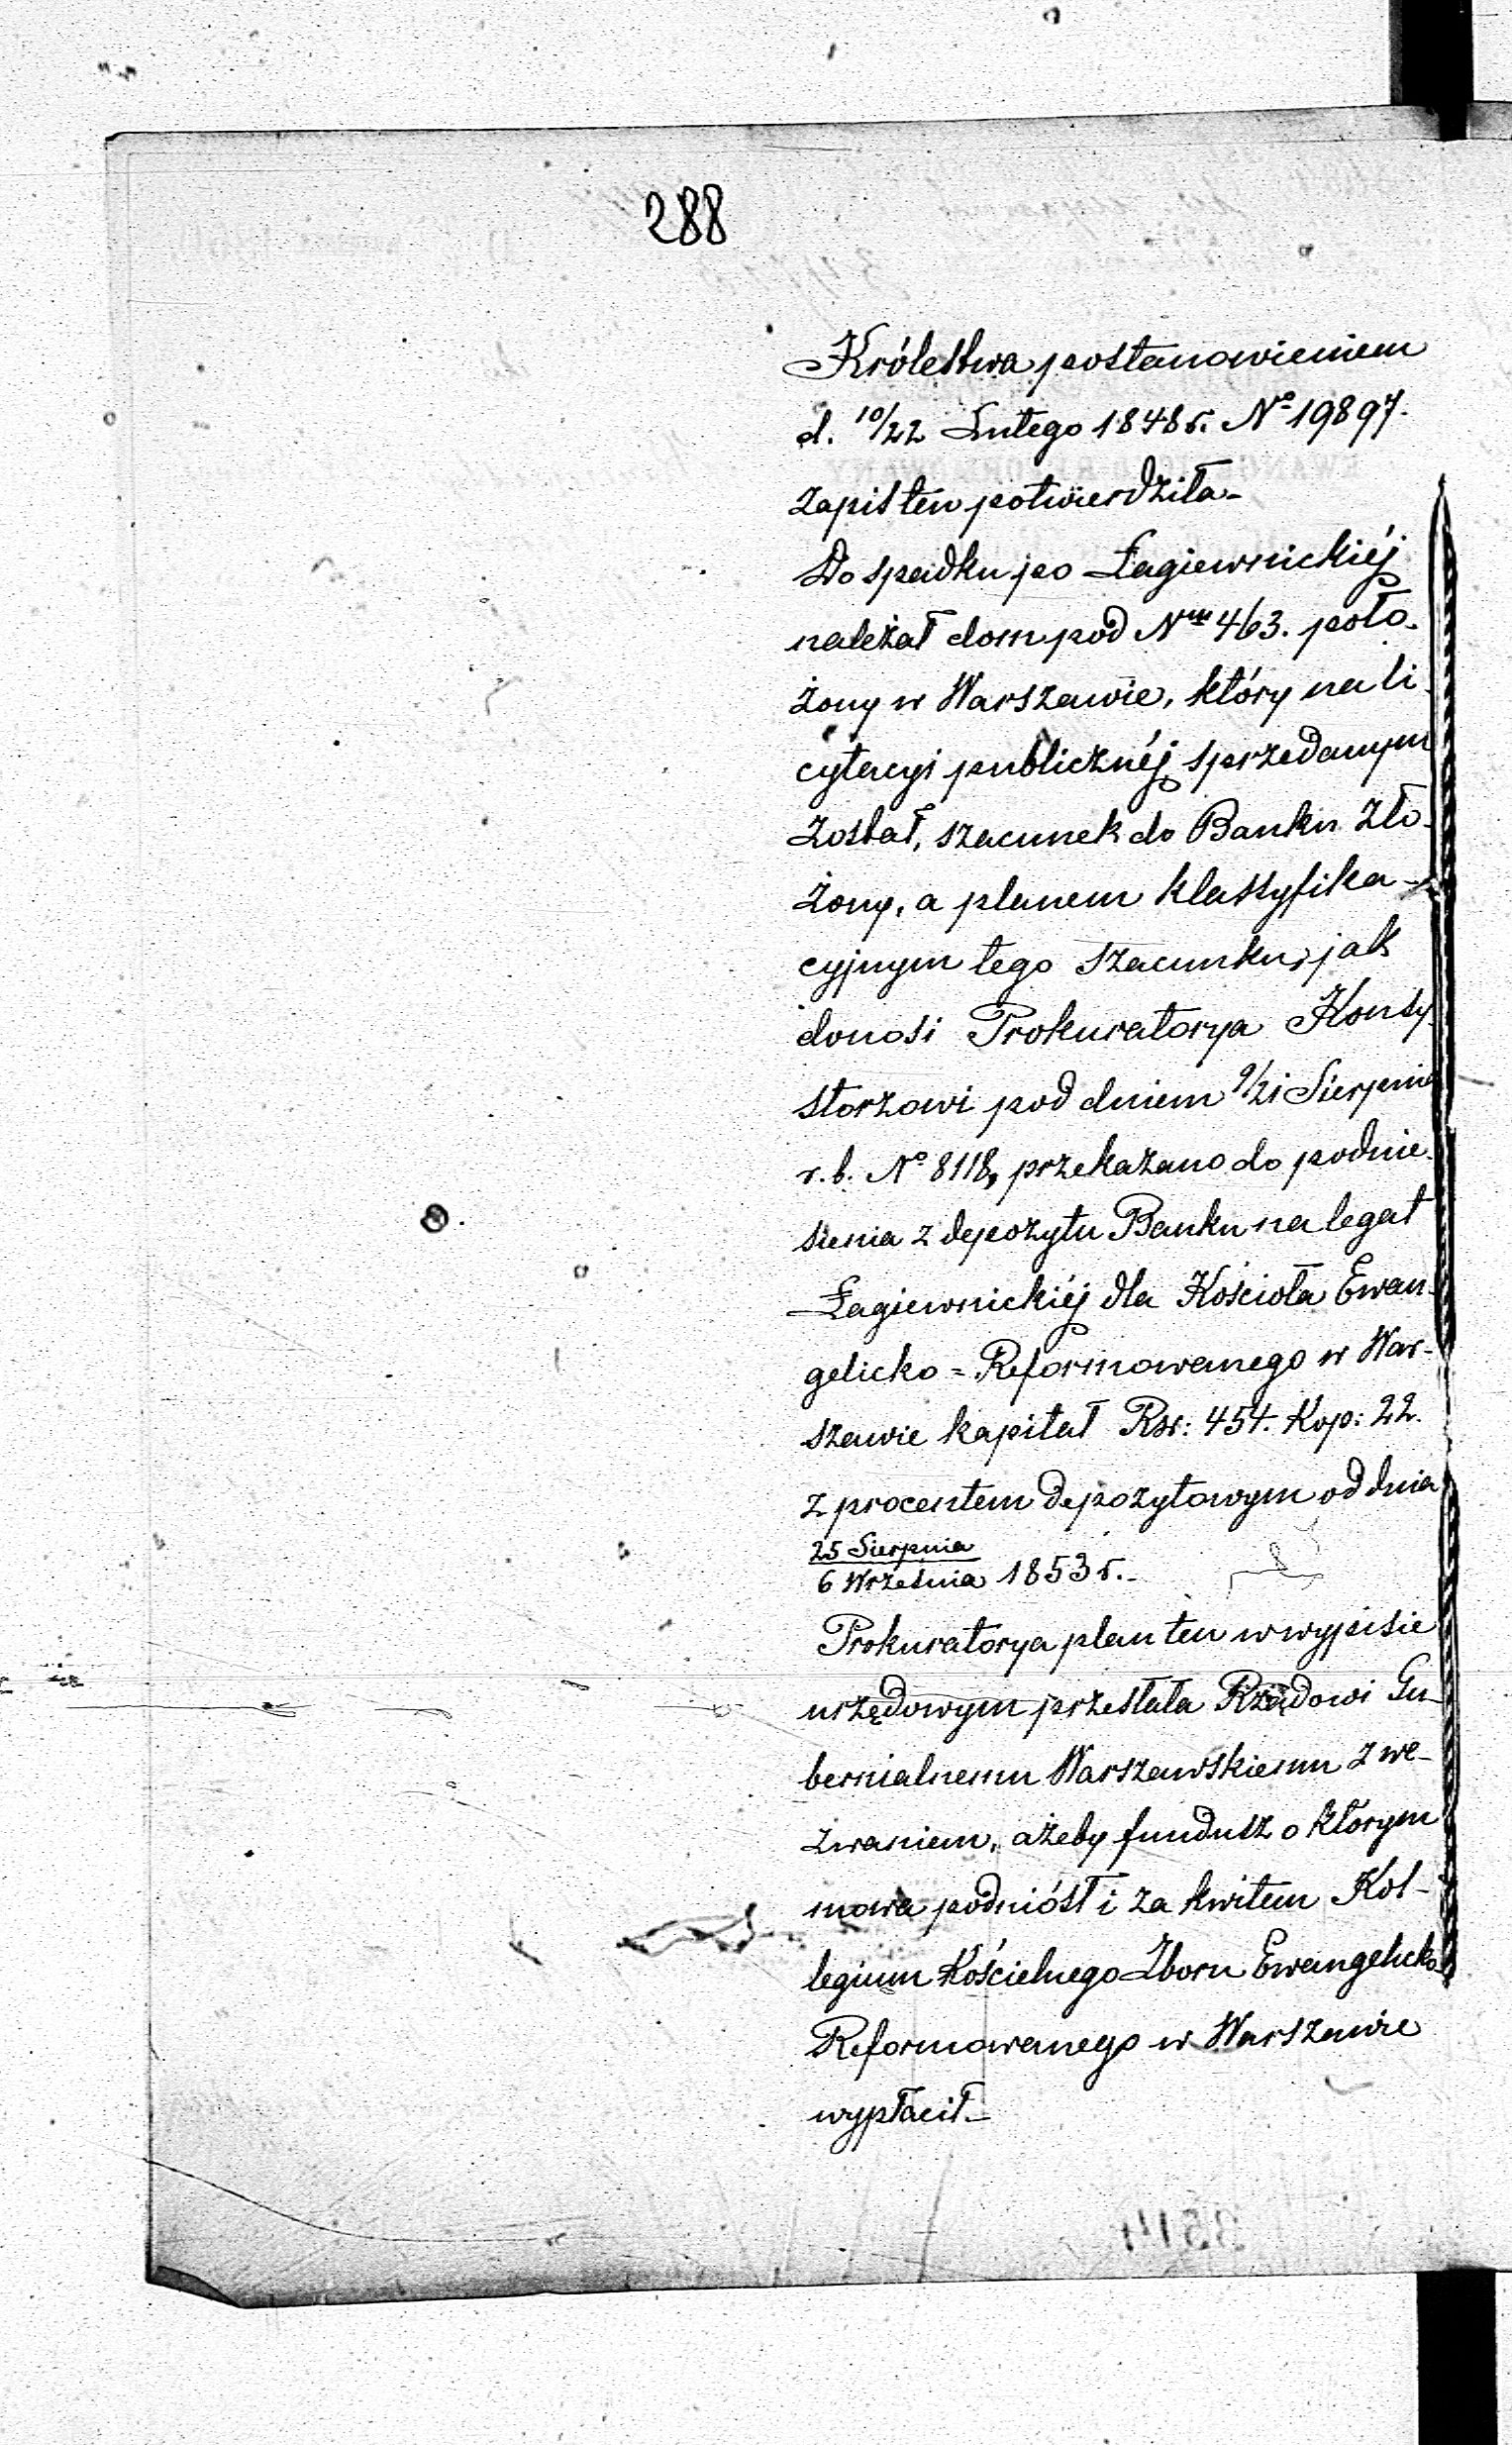 288
Królestwa postanowieniem
d. 10/22 Lutego 1848 r. No 19897.
zapis ten potwierdziła_
Do spadku po Łagiewnickiéj
należał dom pod Nrem 463. poło-
żony w Warszawie, który na li-
cytacyi publicznéj sprzedanym
został, szacunek do Banku zło-
żony, a planem klassyfika-
cyjnym tego szacunku, jak
donosi Prokuratorya Konsy-
storzowi pod dniem 9/21 Sierpnia
r. b. No 8118, przekazano do podnie-
sienia z depozytu Banku na legat
Łagiewnickiéj dla Kościoła Ewan-
gelicko=Reformowanego w War-
szawie kapitał Rsr: 454. Kop: 22.
z procentem depozytowym od dnia
25 Sierpnia
6 Września 1853 r._
Prokuratorya plan ten w wypisie
urzędowym przesłała Rządowi Gu-
bernialnemu Warszawskiemu z we-
zwaniem, ażeby fundusz o którym
mowa podniósł i za kwitem Kol-
legium Kościelnego Zboru Ewangelicko
Reformowanego w Warszawie
wypłacił_